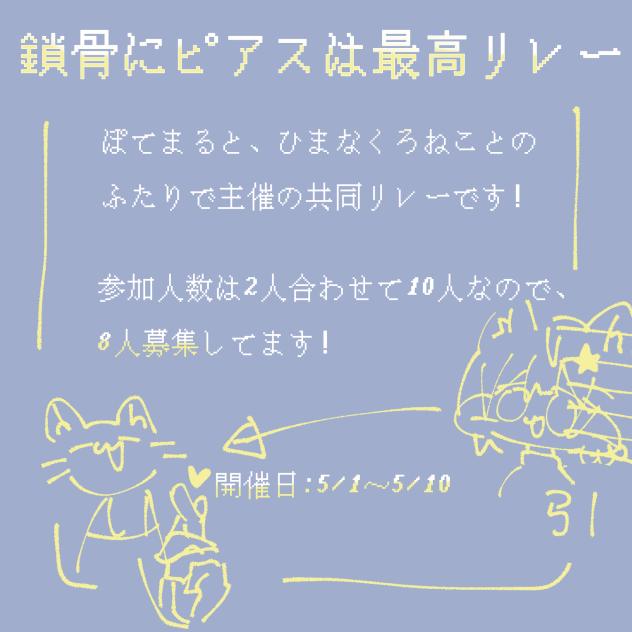 鎖骨にピアスは最高リレー
ぽてまると、ひまなくろねことの
ふたりで主催の共同リレーです!
参加人数は2人合わせて10人なので、
8人募集してます!
開催日:5/1〜5/10
引